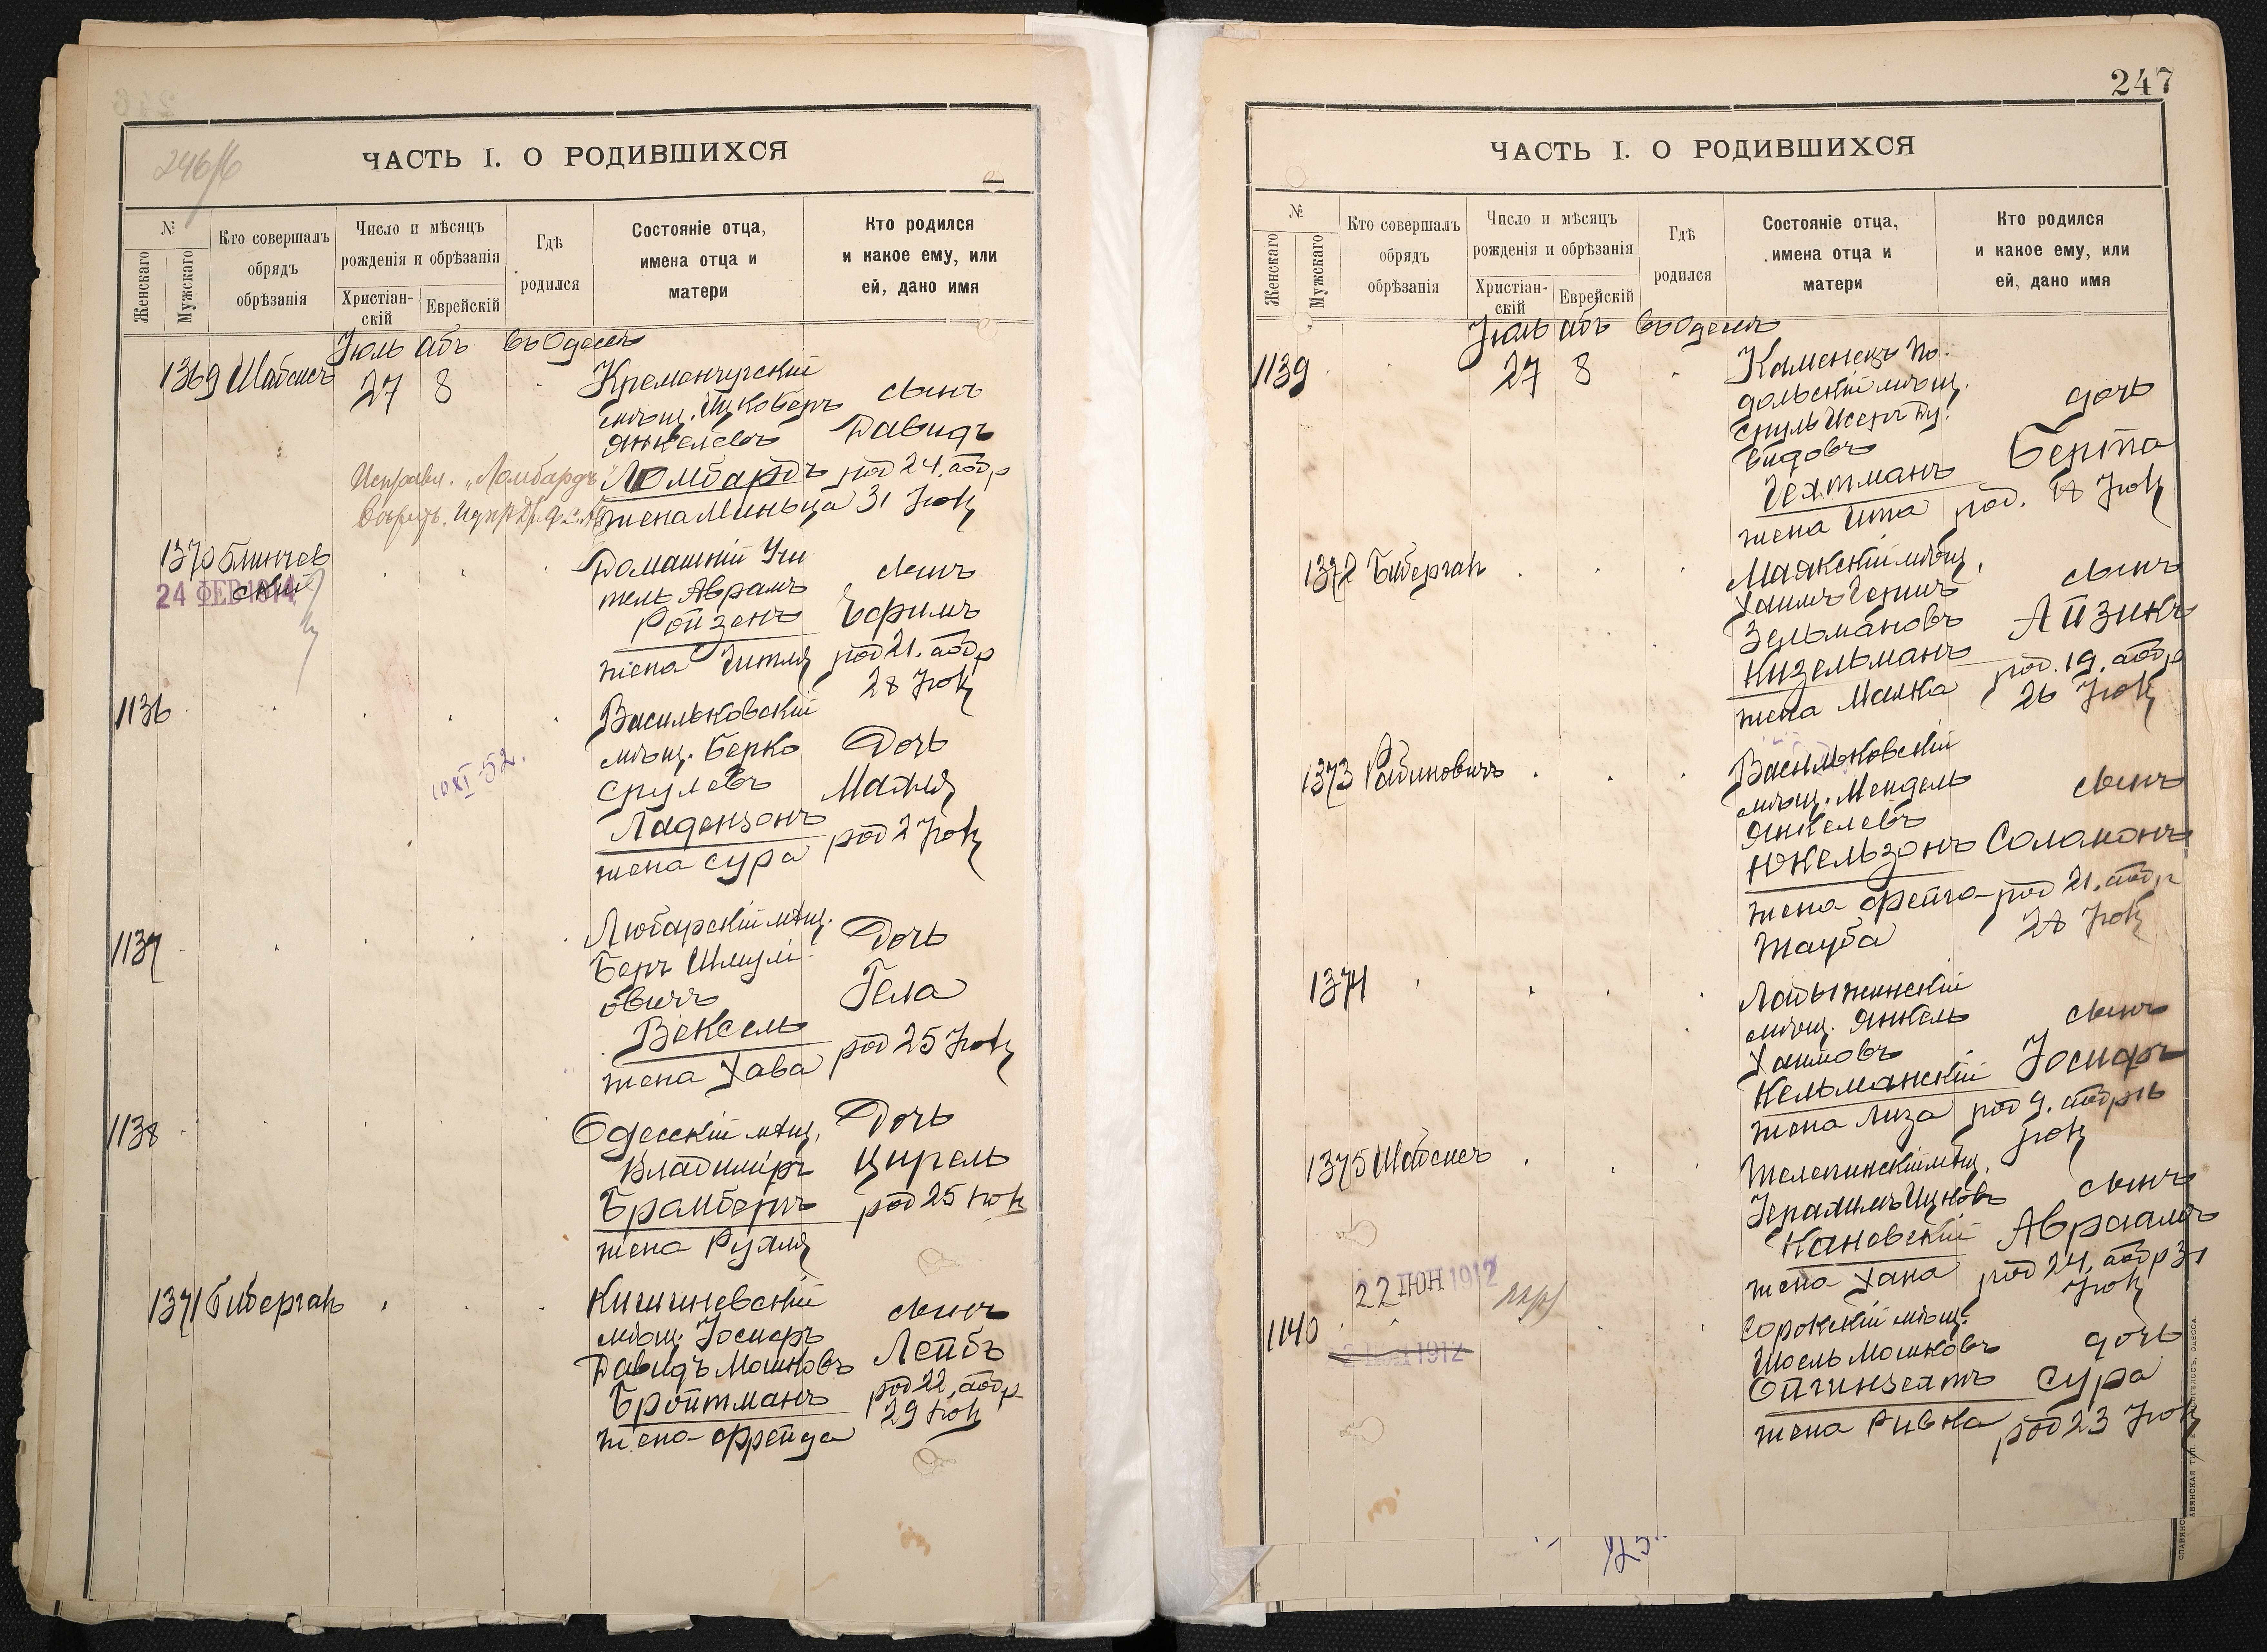 246/б
ЧАСТЬ I. О РОДИВШИХСЯ
№
Женскаго
Мужскаго
Кто совершалъ
обрядъ
обрѣзанія
Число и мѣсяцъ
рожденія и обрѣзанія
Христіан-
скій
Еврейскій
Гдѣ
родился
Состояніе отца,
имена отца и
матери
Кто родился
и какое ему, или
ей, дано имя
Іюль Абъ въ Одессѣ
1369 Шабсисъ 27 8
Кременчугскій
мѣщ. Ицко Беръ
Янкелевъ
Ломбардъ
жена Миньца
сынъ
Давидъ
род 24. аобр
31 Іюля
Исправл. „Ломбардъ"
1370 Блинчев
ский
24 ФЕВ 1914
Домашній Учи
тель Аврамъ
Ройзенъ
жена Гитля
сынъ
Ефимъ
род 21. аобр
28 Іюля
1136
10 XI 52.
Васильковскій
мѣщ. Берко
Срулевъ
Ладензонъ
жена Сура
Дочь
Маля
род 2 Іюля
1137
Любарскій мѣщ.
Беръ Шмули
овичъ
Вексель
жена Хава
Дочь
Гела
род 25 Іюля
1138
Одесскій мѣщ.
Владиміръ
Брамбергъ
жена Рухля
Дочь
Цирель
род 25 Іюля
1371 Биберган
Кишиневскій
мѣщ. Іосифъ
Давидъ Мошковъ
Бройтманъ
жена Фрейда
сынъ
Лейбъ
род 22, аобр
29 Іюля
247
ЧАСТЬ I. О РОДИВШИХСЯ
№
Женскаго
Мужскаго
Кто совершалъ
обрядъ
обрѣзанія
Число и мѣсяцъ
рожденія и обрѣзанія
Христіан-
скій
Еврейскій
Гдѣ
родился
Состояніе отца,
имена отца и
матери
Кто родился
и какое ему, или
ей, дано имя
Іюль Абъ въ Одессѣ
1139 27 8
Каменецъ По-
дольскій мѣщ.
Сруль Исеръ Ду
видовъ
Гехтманъ
жена Ита
дочь
Берта
род. 18 Іюля
1372 Биберган
Маякскій мѣщ.
Хаимъ Гершъ
Зельмановъ
Кизельманъ
жена Малка
сынъ
Айзикъ
род. 19. аобр
26 Іюля
1373 Рабиновичъ
Васильковскій
мѣщ. Мендель
Янкелевъ
Юкельзонъ
жена Фейга-
Тауба
сынъ
Соломонъ
род 21. аобр
28 Іюля
1374
Ладыжинскій
мѣщ. Янкель
Хаимовъ
Кельманскій
жена Лиза
сынъ
Іосифъ
род 9. аобр 16
Іюля
1375 Шабсисъ
Телепинскій мѣщ.
Ицковъ
Кановскій
жена Хана
сынъ
Авраамъ
род 24, аобр 31
Іюля
22 ІЮН 1912
1140
1912
Сорокскій мѣщ.
Шоель Мошковъ
Ойгинзехтъ
жена Ривка
дочь
Сура
род 23 Іюля